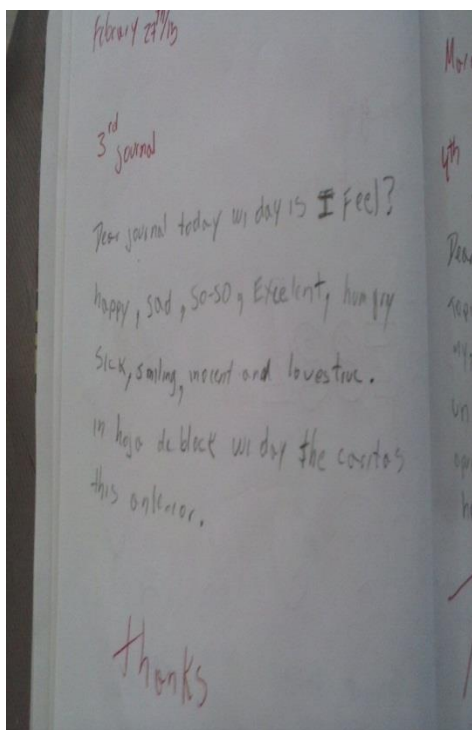 February 27th/13
3rd journal
Dear journal today wi day is I Feel?
happy, sad, so-so, Excelent, hungry
sick, smiling, inocent and lovestruc.
in hoja de block wi day the caritas
this anterior.
thanks
4th
Dear